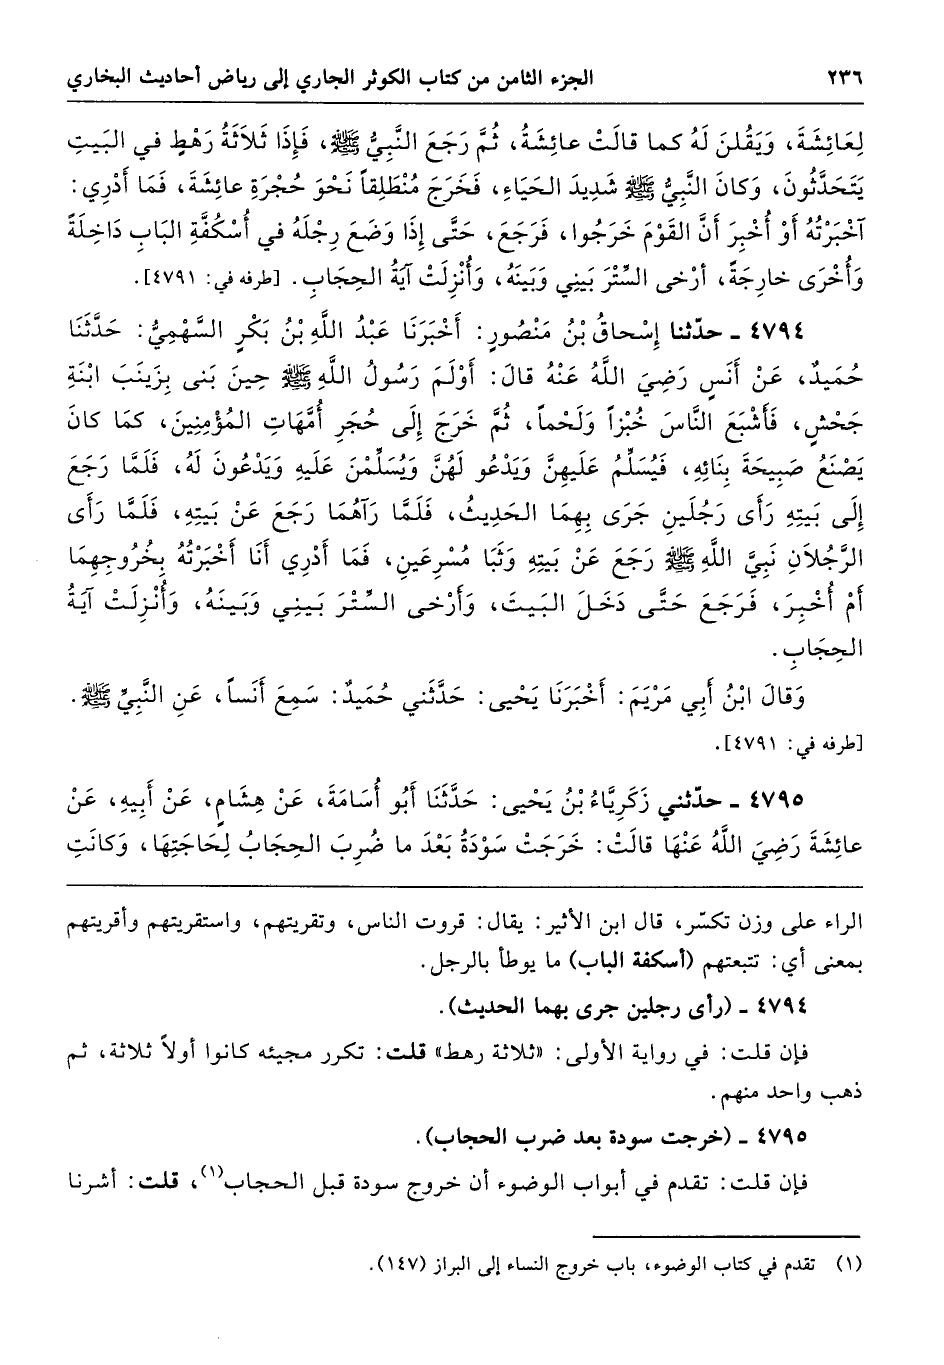 ٢٣٦ الجزء الثامن من كتاب الكوثر الجاري إلى رياض أحاديث البخاري
لِعَائِشَةَ، وَيَقُلنَ لَهُ كما قالَتْ عائِشَةُ، ثُمَّ رَجَعَ النَّبِيُّ ﷺ، فَإِذَا ثَلاَثَةُ رَهْطٍ في البَيتِ
يَتَحَدَّثُونَ، وَكانَ النَّبِيُّ ﷺ شَدِيدَ الحَيَاءِ، فَخَرَجَ مُنْطَلِقاً نَحْوَ حُجْرَةِ عائِشَةَ، فَمَا أَدْرِي:
آخْبَرْتُهُ أَوْ أُخْبِرَ أَنَّ القَوْمَ خَرَجُوا، فَرَجَعَ، حَتَّى إِذَا وَضَعَ رِجْلَهُ في أُسْكُفَّةِ البَابِ دَاخِلَةً
وَأُخْرَى خارِجَةً، أَرْخى السِّتْرَ بَيني وَبَينَهُ، وَأُنْزِلَتْ آيَةُ الحِجَابِ. [طرفه في: ٤٧٩١].
٤٧٩٤ ـ حدّثنا إِسْحاقُ بْنُ مَنْصُورٍ: أَخْبَرَنَا عَبْدُ اللَّهِ بْنُ بَكْرٍ السَّهْمِيُّ: حَدَّثَنَا
حُمَيدٌ، عَنْ أَنَسٍ رَضِيَ اللَّهُ عَنْهُ قالَ: أَوْلَمَ رَسُولُ اللَّهِ ﷺ حِينَ بَنى بِزَينَبَ ابْنَةِ
جَحْشٍ، فَأَشْبَعَ النَّاسَ خُبْزاً وَلَحْماً، ثُمَّ خَرَجَ إِلَى حُجَرِ أُمَّهَاتِ المُؤْمِنِينَ، كمَا كانَ
يَصْنَعُ صَبِيحَةَ بِنَائِهِ، فَيُسَلِّمُ عَلَيهِنَّ وَيَدْعُو لَهُنَّ وَيُسَلِّمْنَ عَلَيهِ وَيَدْعُونَ لَهُ، فَلَمَّا رَجَعَ
إِلَى بَيتِهِ رَأَى رَجُلَينِ جَرَى بِهِمَا الحَدِيثُ، فَلَمَّا رَآهُمَا رَجَعَ عَنْ بَيتِهِ، فَلَمَّا رَأَى
الرَّجُلاَنِ نَبِيَّ اللَّهِ ﷺ رَجَعَ عَنْ بَيتِهِ وَثَبَا مُسْرِعَينِ، فَمَا أَدْرِي أَنَا أَخْبَرْتُهُ بِخُرُوجِهِمَا
أَمْ أُخْبِرَ، فَرَجَعَ حَتَّى دَخَلَ البَيتَ، وَأَرْخى السِّتْرَ بَينِي وَبَينَهُ، وَأُنْزِلَتْ آيَةُ
الحِجَابِ.
وَقالَ ابْنُ أَبِي مَرْيَمَ: أَخْبَرَنَا يَحْيى: حَدَّثَني حُمَيدٌ: سَمِعَ أَنَساً، عَنِ النَّبِيِّ ﷺ.
[طرفه في: ٤٧٩١].
٤٧٩٥ ـ حدّثني زَكَرِيَّاءُ بْنُ يَحْيى: حَدَّثَنَا أَبُو أُسَامَةَ، عَنْ هِشَامٍ، عَنْ أَبِيهِ، عَنْ
عائِشَةَ رَضِيَ اللَّهُ عَنْهَا قالَتْ: خَرَجَتْ سَوْدَةُ بَعْدَ ما ضُرِبَ الحِجَابُ لِحَاجَتِهَا، وَكانَتِ
الراء على وزن تكسّر، قال ابن الأثير: يقال: قروت الناس، وتقريتهم، واستقريتهم وأقريتهم
بمعنى أي: تتبعتهم (أسكفة الباب) ما يوطأ بالرجل.
٤٧٩٤ ـ (رأى رجلين جرى بهما الحديث).
فإن قلت: في رواية الأولى: «ثلاثة رهط» قلت: تكرر مجيئه كانوا أولاً ثلاثة، ثم
ذهب واحد منهم.
٤٧٩٥ ـ (خرجت سودة بعد ضرب الحجاب).
فإن قلت: تقدم في أبواب الوضوء أن خروج سودة قبل الحجاب(١)، قلت: أشرنا
(١) تقدم في كتاب الوضوء، باب خروج النساء إلى البراز (١٤٧).